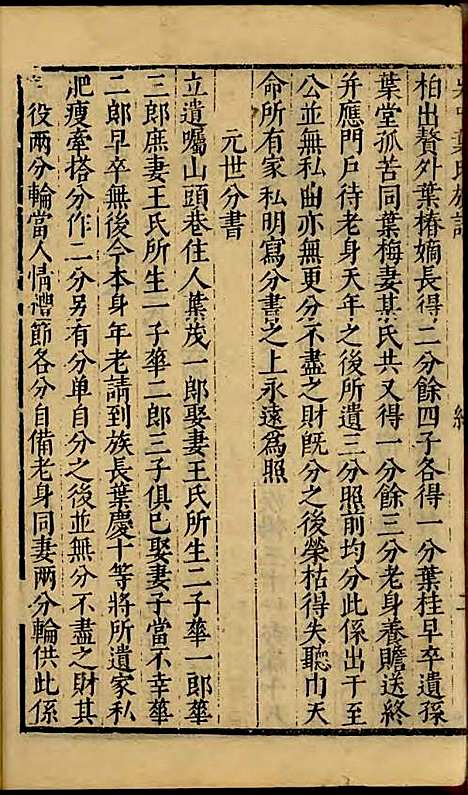 柏出贅外葉椿嫡長得二分餘四子各得一分葉桂早卒遺孫
葉堂孤苦同葉梅妻某氏共又得一分餘三分老身養贍送終
并應門戶待老身天年之後所遺三分照前均分此係出于至
公並無私曲亦無更分不盡之財旣分之後榮枯得失聽由天
命所有家私明寫分書之上永遠爲照
元世分書
立遺囑山頭巷住人葉茂一郎娶妻王氏所生二子華一郎華
三郎庶妻王氏所生一子華二郎三子俱已娶妻子當不幸華
二郎早卒無後今本身年老請到族長葉慶十等將所遺家私
肥瘦牽搭分作二分另有分单自分之後並無分不盡之財其
役兩分輪當人情禮節各分自備老身同妻兩分輪供此係
葉氏族譜